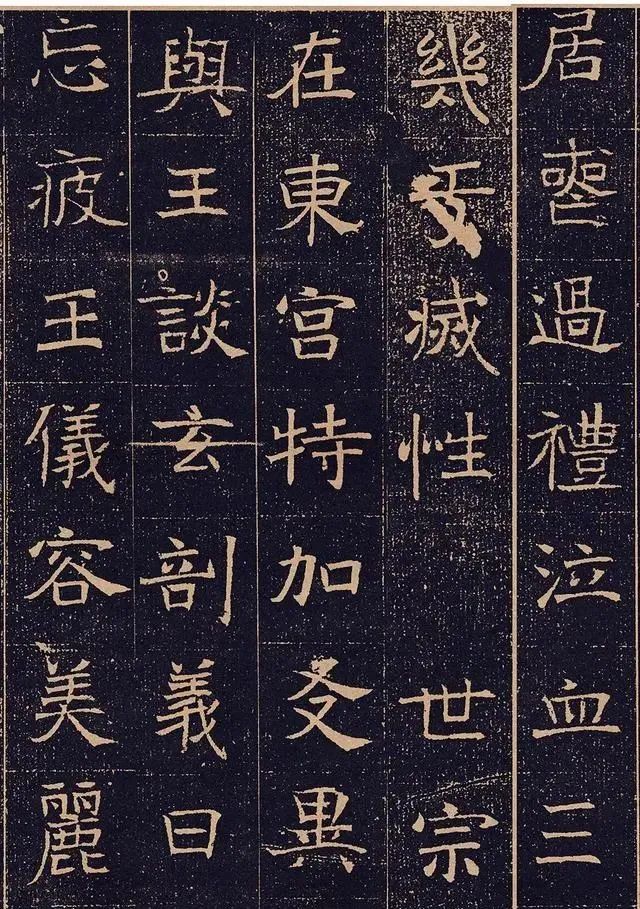 居喪過禮泣血三
幾于滅性 世宗
在東宮特加友異
與王談玄剖義日
忘疲王儀容美麗